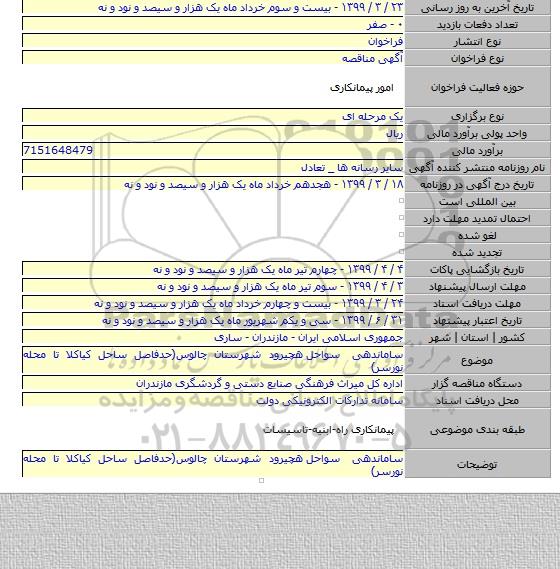 تاریخ آخرین به روز رسانی ۲۳ / ۳ / ۱۳۹۹ - بیست و سوم خرداد ماه یک هزار و سیصد و نود و نه
تعداد دفعات بازدید ۰ - صفر
نوع انتشار فراخوان
نوع فراخوان آگهی مناقصه
حوزه فعالیت فراخوان امور پیمانکاری
نوع برگزاری یک مرحله ای
واحد پولی برآورد مالی ریال
برآورد مالی 7151648479
نام روزنامه منتشر کننده آگهی سایر رسانه ها _ تعادل
تاریخ درج آگهی در روزنامه ۱۸ / ۳ / ۱۳۹۹ - هجدهم خرداد ماه یک هزار و سیصد و نود و نه
بین المللی است
احتمال تمدید مهلت دارد
لغو شده
تجدید شده
تاریخ بازگشایی پاکات ۴ / ۴ / ۱۳۹۹ - چهارم تیر ماه یک هزار و سیصد و نود و نه
مهلت ارسال پیشنهاد ۳ / ۴ / ۱۳۹۹ - سوم تیر ماه یک هزار و سیصد و نود و نه
مهلت دریافت اسناد ۲۴ / ۳ / ۱۳۹۹ - بیست و چهارم خرداد ماه یک هزار و سیصد و نود و نه
تاریخ اعتبار پیشنهاد ۳۱ / ۶ / ۱۳۹۹ - سی و یکم شهریور ماه یک هزار و سیصد و نود و نه
کشور | استان | شهر جمهوری اسلامی ایران - مازندران - ساری
موضوع ساماندهی سواحل هچیرود شهرستان چالوس(حدفاصل ساحل کیاکلا تا محله
نورسر)
دستگاه مناقصه گزار اداره کل میراث فرهنگی صنایع دستی و گردشگری مازندران
محل دریافت اسناد سامانه تدارکات الکترونیکی دولت
طبقه بندی موضوعی پیمانکاری راه-ابنیه-تاسیسات
توضیحات ساماندهی سواحل هچیرود شهرستان چالوس(حدفاصل ساحل کیاکلا تا محله
نورسر)
۰۲۱-۸۸۳۴۹۶۷۰-۵